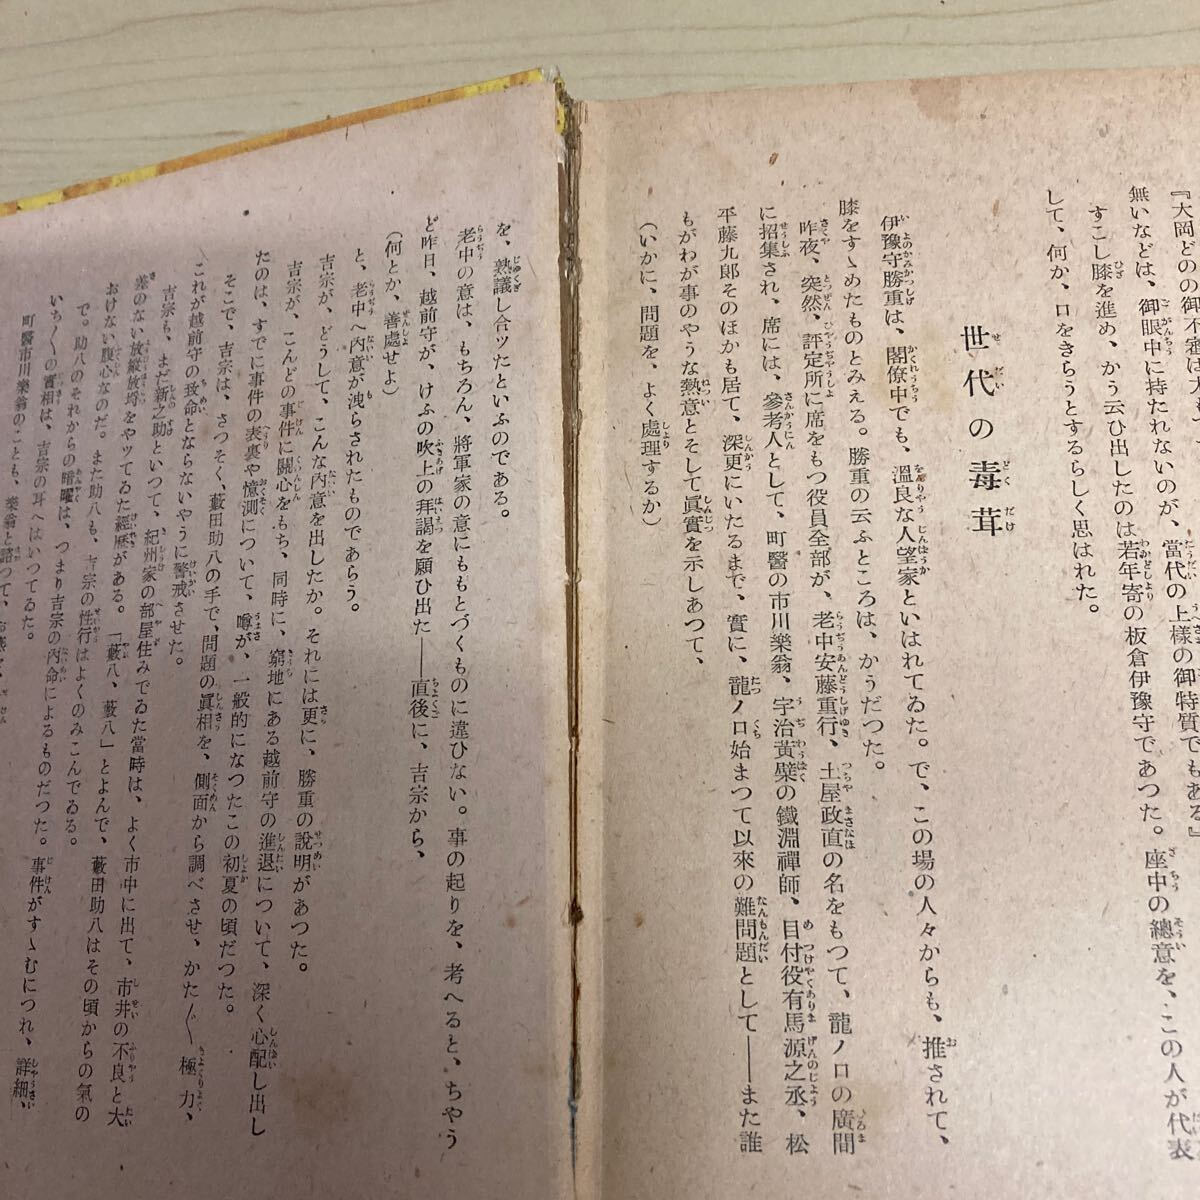 『大岡どのの御不審は大も
無いなどは、御眼中に持たれないのが、當代の上様の御特質でもある』
すこし膝を進め、かう云ひ出したのは若年寄の板倉伊豫守であつた。座中の總意を、この人が代表
して、何か、口をきらうとするらしく思はれた。
世代の毒茸
伊豫守勝重は、閣僚中でも、溫良な人望家といはれてゐた。で、この場の人々からも、推されて、
膝をすゝめたものとみえる。勝重の云ふところは、かうだつた。
昨夜、突然、評定所に席をもつ役員全部が、老中安藤重行、土屋政直の名をもつて、龍ノ口の廣間
に招集され、席には、參考人として、町醫の市川樂翁、宇治黃檗の鐵淵禪師、目付役有馬源之丞、松
平藤九郎そのほかも居て、深更にいたるまで、實に、龍ノ口始まつて以來の難問題として——また誰
もがわが事のやうな熱意とそして眞實を示しあつて、
(いかに、問題を、よく處理するか)
を、熟議し合ッたといふのである。
老中の意は、もちろん、將軍家の意にももとづくものに違ひない。事の起りを、考へると、ちやう
ど昨日、越前守が、けふの吹上の拜謁を願ひ出た——直後に、吉宗から、
(何とか、善處せよ)
と、老中へ內意が洩らされたものであらう。
吉宗が、どうして、こんな內意を出したか。それには更に、勝重の說明があつた。
吉宗が、こんどの事件に關心をもち、同時に、窮地にある越前守の進退について、深く心配し出し
たのは、すでに事件の表裏や憶測について、噂が、一般的になつたこの初夏の頃だつた。
そこで、吉宗は、さつそく、藪田助八の手で、問題の眞相を、側面から調べさせ、かた〴〵極力、
これが越前守の致命とならないやうに警戒させた。
吉宗も、まだ新之助といつて、紀州家の部屋住みでゐた當時は、よく市中に出て、市井の不良と大
差のない放縱放埓をやッてゐた經歷がある。「藪八、藪八」とよんで、藪田助八はその頃からの氣の
おけない腹心なのだ。また助八も、吉宗の性行はよくのみこんでゐる。
で。助八のそれからの暗躍は、つまり吉宗の內命によるものだつた。事件がすゝむにつれ、詳細、
いち〳〵の實相は、吉宗の耳へはいつてゐた。
町醫市川樂翁のことも、樂翁と諮つて、